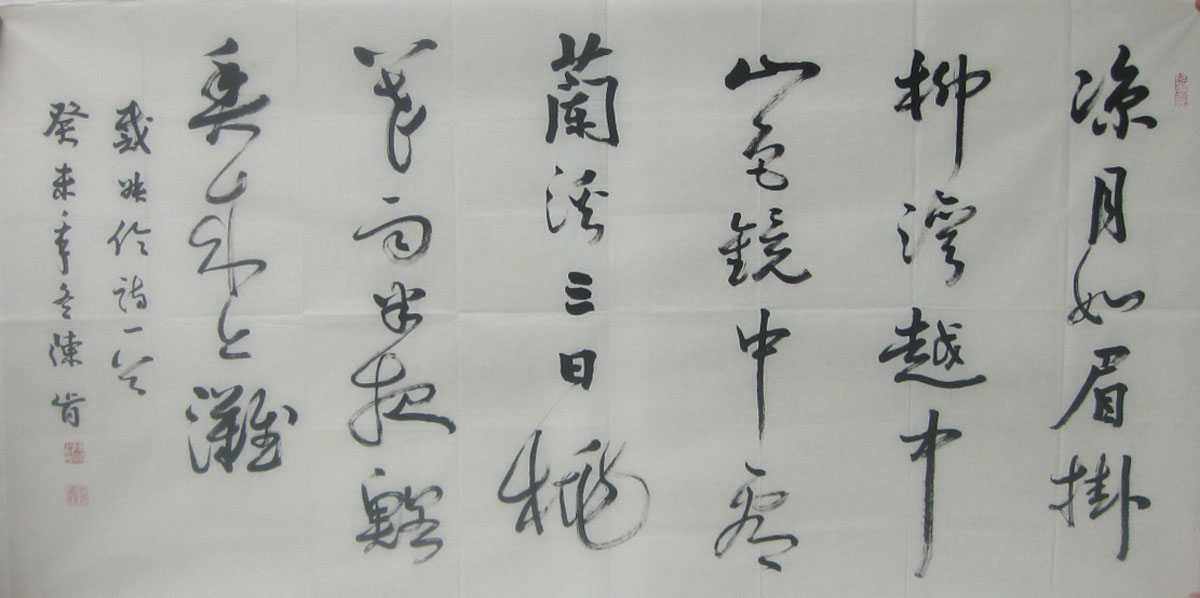 涼月如眉掛
柳灣越中
山色鏡中看
蘭溪三日桃
花雨半夜鯉
魚來上灘
戴叔倫詩一首
癸未年冬陳肯